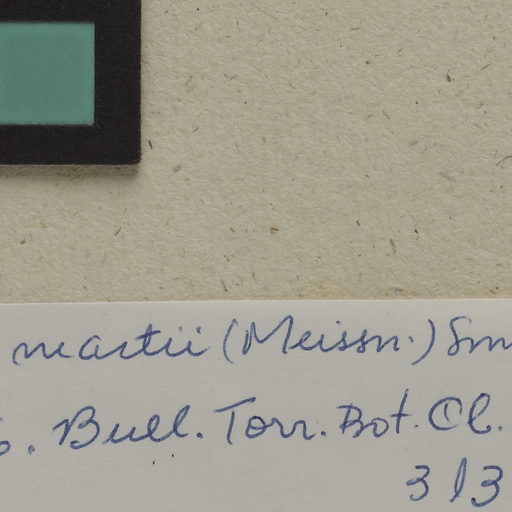 martii (Meissn.) Sm
. Bull. Torr. Bot. Cl.
313